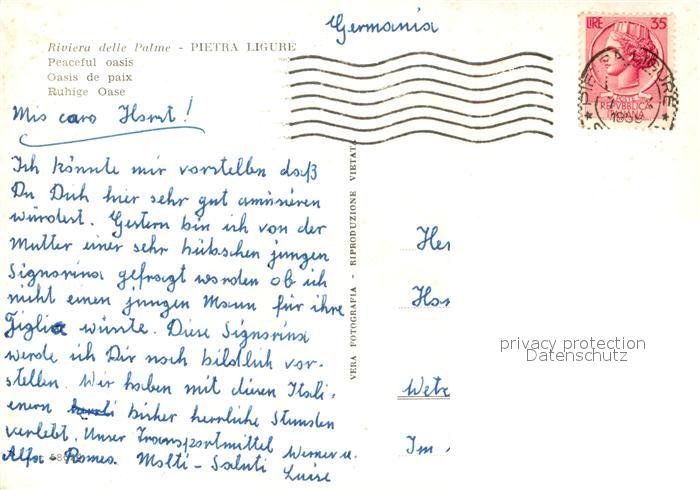 Germania
Riviera delle Palme - PIETRA LIGURE
Peaceful oasis
Oasis de paix
Ruhige Oase
LIRE 35
POSTE
REPVBBLICA
ITALIANA
PIETRA LIGURE
Mio caro Horst!
Ich könnte mir vorstellen daß
Du Dich hier sehr gut amüsieren
würdest. Gestern bin ich von der
Mutter einer sehr hübschen jungen
Signorina gefragt worden ob ich
nicht einen jungen Mann für ihre
Figlia wüste. Diese Signorina
werde ich Dir noch bildlich vor-
stellen. Wir haben mit diesen Itali-
enern bisher herrliche Stunden
verlebt. Unser Transportmittel Werner u.
Alfa-Romeo. Molti-Saluti Luise
VERA FOTOGRAFIA - RIPRODUZIONE VIETATA
Her
Hors
Wetz
Im
privacy protection
Datenschutz